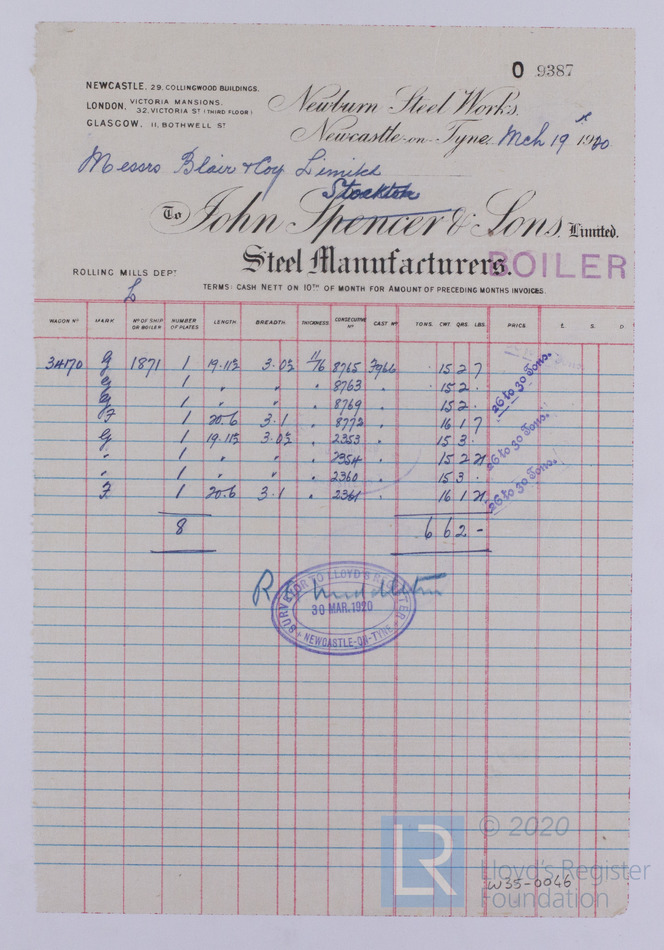 O 9387
NEWCASTLE. 29. COLLINGWOOD BUILDINGS.
LONDON. VICTORIA MANSIONS.
32, VICTORIA ST (THIRD FLOOR)
GLASGOW. 11, BOTHWELL ST
Newburn Steel Works.
Newcastle-on-Tyne. Mch 19 1920
Messrs Blair & Coy Limited
Stockton
To John Spencer & Sons, Limited.
Steel Manufacturers.
BOILER
ROLLING MILLS DEPT
L
TERMS: CASH NETT ON 10TH OF MONTH FOR AMOUNT OF PRECEDING MONTHS INVOICES.
WAGON NO MARK NO OF SHIP OR BOILER NUMBER OF PLATES LENGTH BREADTH THICKNESS CONSECUTIVE NO CAST NO TONS. CWT. QRS. LBS. PRICE £ S. D
34170 G 1871 1 19.11½ 3.0½ 11/16 8765 7966 15 2 7
G 1 " " " 8763 " 15 2 -
G 1 " " " 8769 " 15 2 -
F 1 20.6 3.1 " 8772 " 16 1 7
G 1 19.11½ 3.0½ " 2353 " 15 3 -
" 1 " " " 2354 " 15 2 21
" 1 " " " 2360 " 15 3 -
F 1 20.6 3.1 " 2361 " 16 1 21
26 to 30 Tons.
26 to 30 Tons.
26 to 30 Tons.
8 6 6 2 -
R Middleton
SURVEYOR TO LLOYD'S REGISTER
30 MAR. 1920
NEWCASTLE-ON-TYNE
LR
© 2020
Lloyd's Register
Foundation
W35-0046